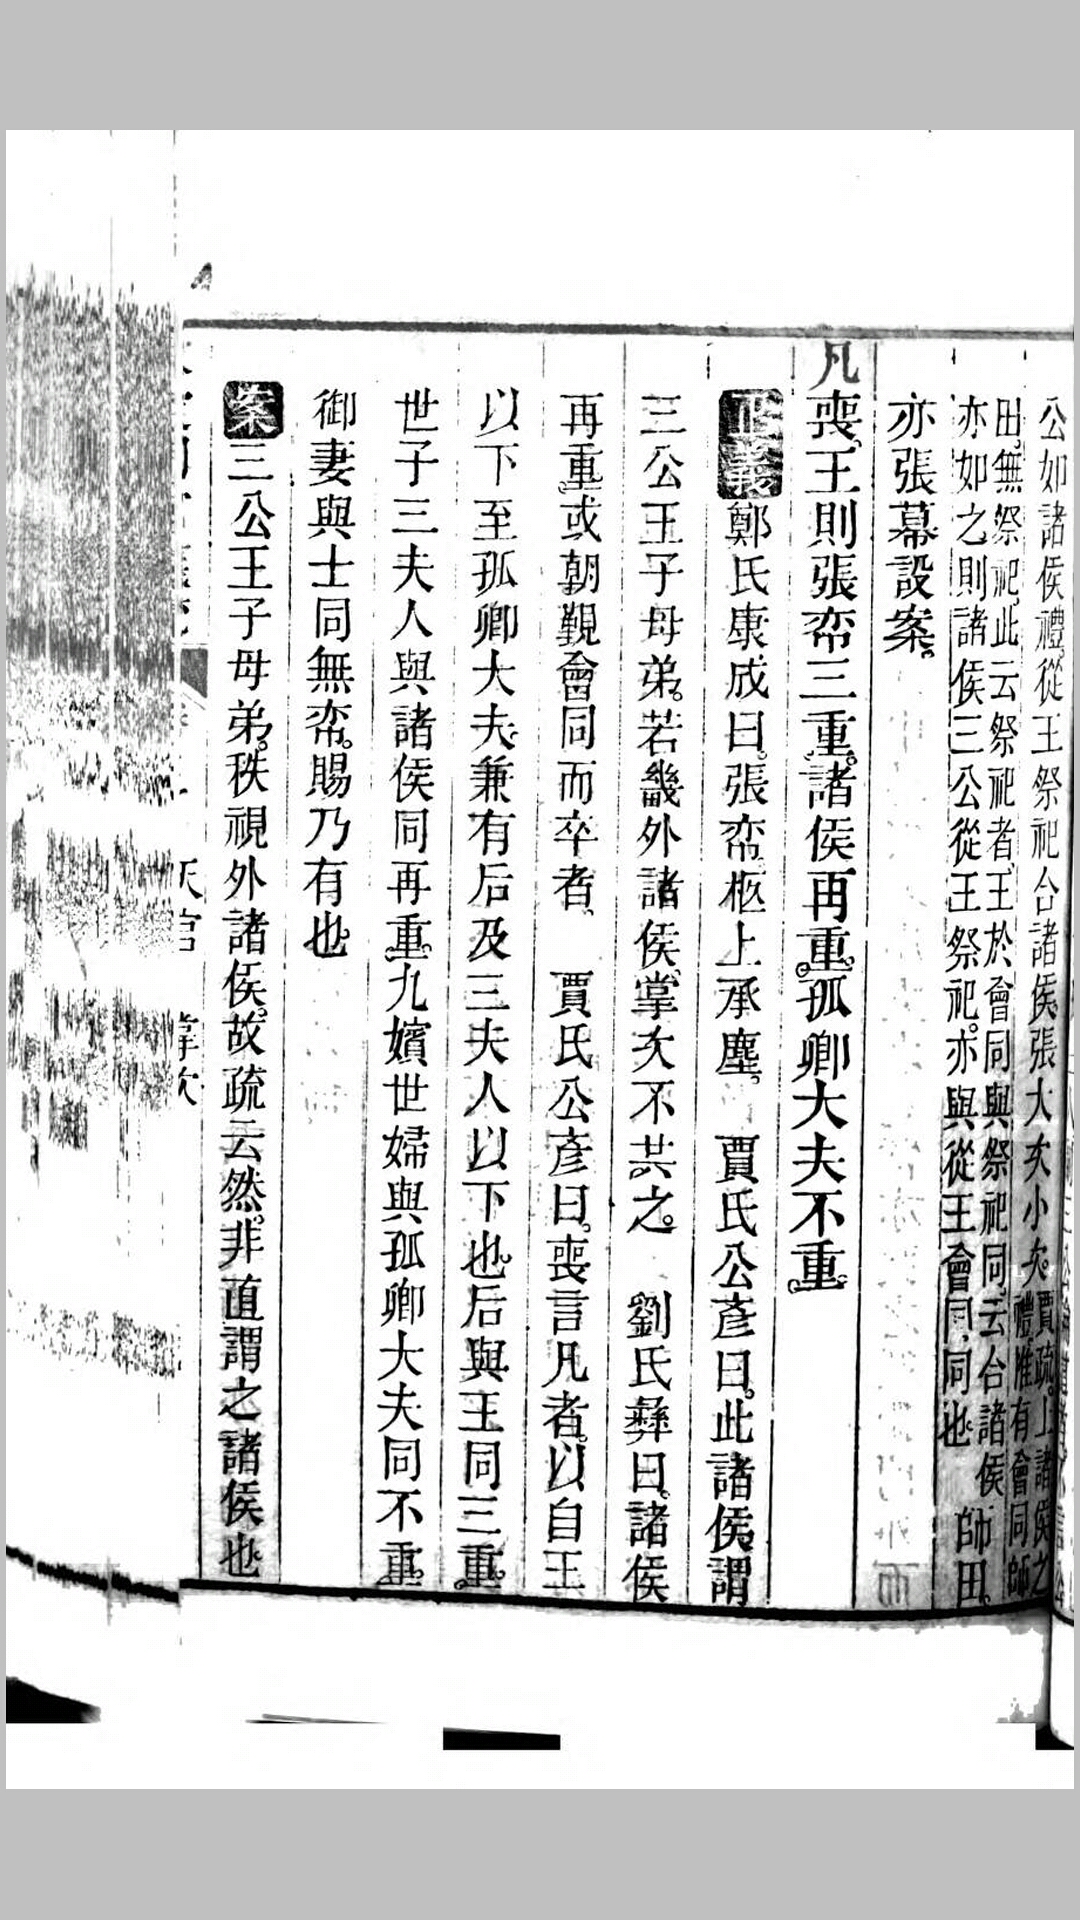 公如諸侯禮從王祭祀合諸侯張大次小次賈疏上諸侯之
禮惟有會同師
田無祭祀此云祭祀者王於會同與祭祀同云合諸侯師田
亦如之則諸侯三公從王祭祀亦與從王會同同也
亦張幕設案
凡喪王則張帟三重諸侯再重孤卿大夫不重
正義鄭氏康成曰張帟柩上承塵 賈氏公彦曰此諸侯謂
三公王子母弟若畿外諸侯掌次不共之 劉氏彝曰諸侯
再重或朝覲會同而卒者 賈氏公彦曰喪言凡者以自王
以下至孤卿大夫兼有后及三夫人以下也后與王同三重
世子三夫人與諸侯同再重九嬪世婦與孤卿大夫同不重
御妻與士同無帟賜乃有也
案三公王子母弟秩視外諸侯故疏云然非直謂之諸侯也
天官 掌次